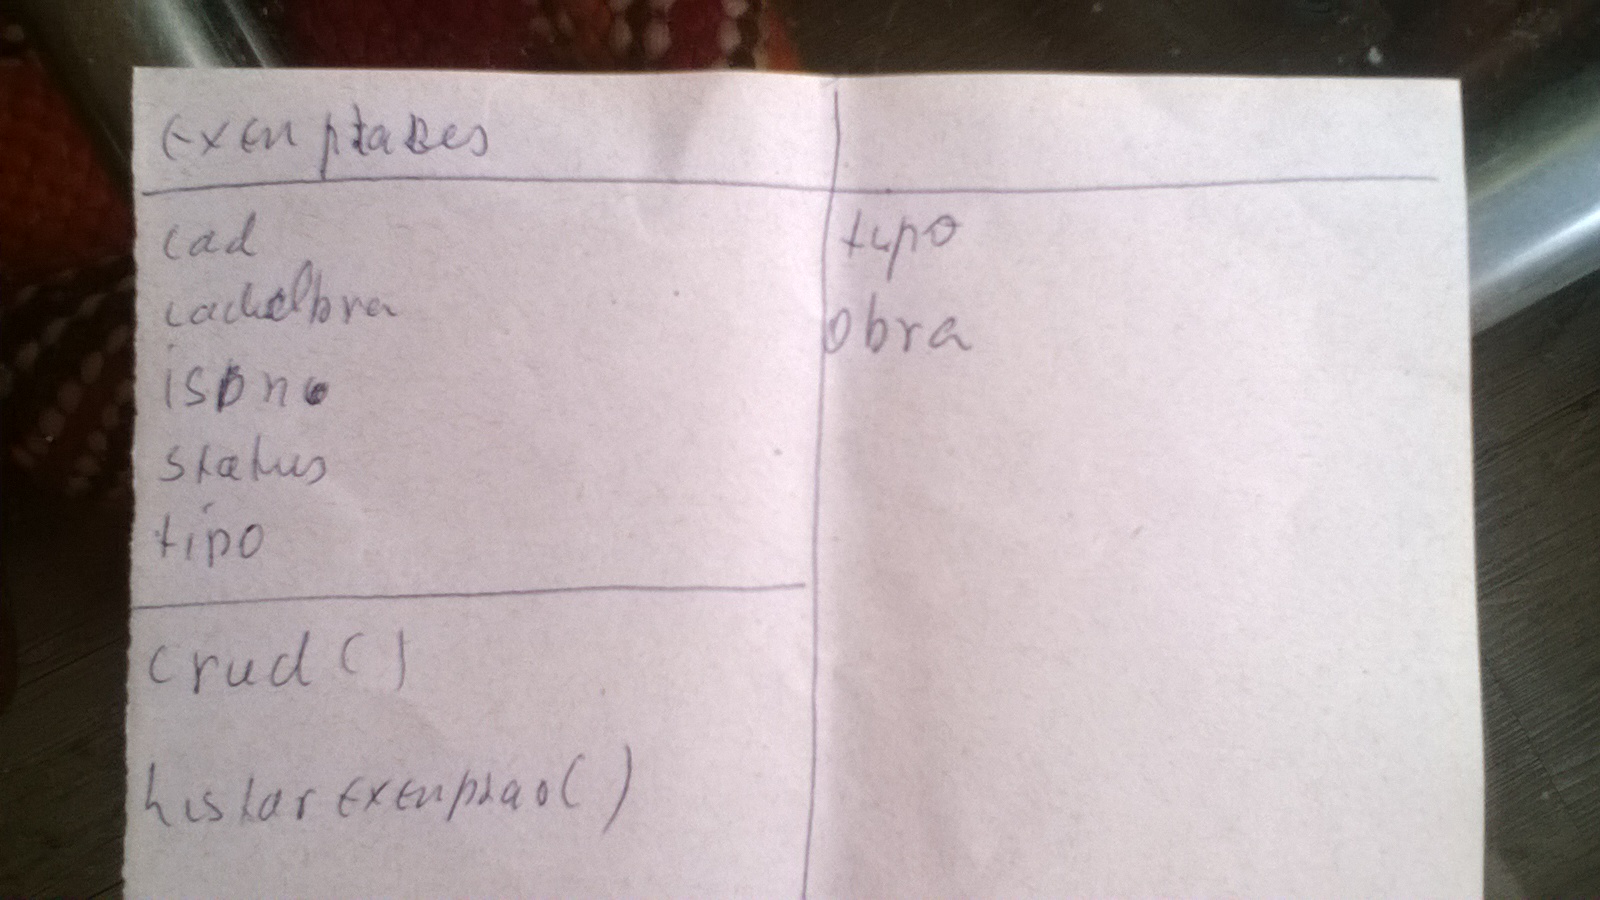 Exemplares
cod
isbn
status
tipo
crud()
listar Exemplar()
tipo
obra